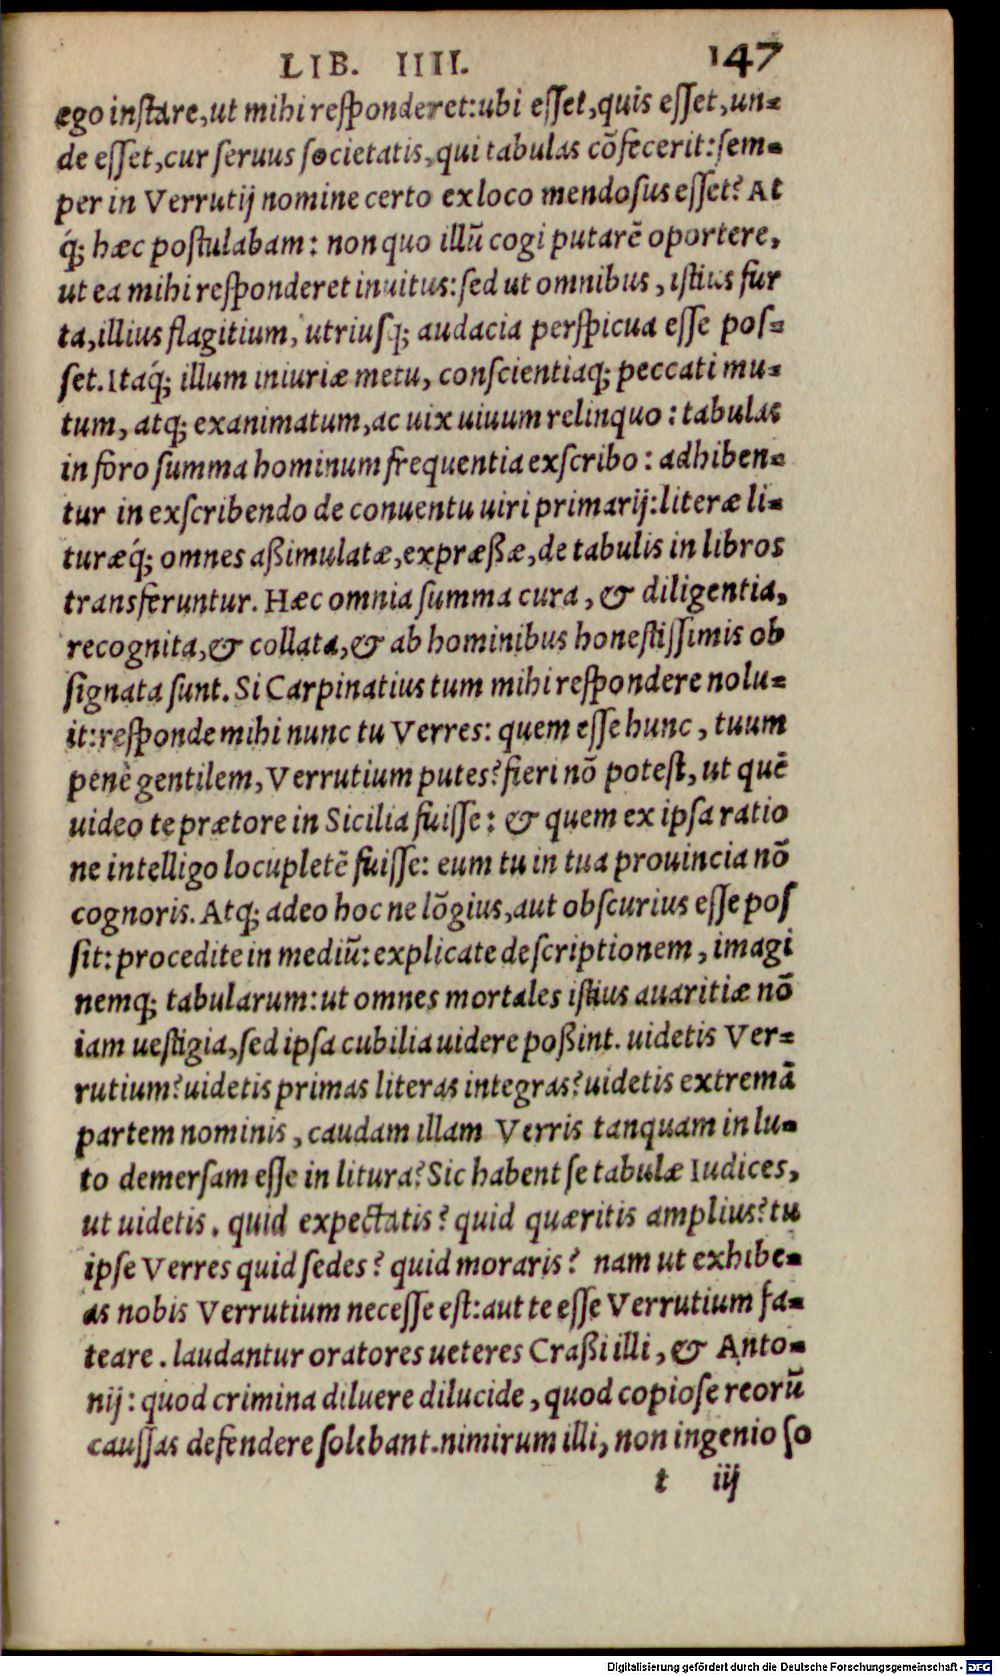 LIB. IIII. 147
ego instare, ut mihi responderet: ubi esset, quis esset, un-
de esset, cur seruus societatis, qui tabulas cõfecerit: sem-
per in Verrutij nomine certo ex loco mendosus esset? At
q́; hæc postulabam: non quo illũ cogi putarẽ oportere,
ut ea mihi responderet inuitus: sed ut omnibus, istius fur
ta, illius flagitium, utriusq; audacia perspicua esse pos-
set. Itaq́; illum iniuriæ metu, conscientiaq; peccati mu-
tum, atq; exanimatum, ac uix uiuum relinquo: tabulas
in foro summa hominum frequentia exscribo: adhiben-
tur in exscribendo de conuentu uiri primarij: literæ li-
turæq́; omnes aßimulatæ, expræßæ, de tabulis in libros
transferuntur. Hæc omnia summa cura, & diligentia,
recognita, & collata, & ab hominibus honestissimis ob
signata sunt. Si Carpinatius tum mihi respondere nolu-
it: responde mihi nunc tu Verres: quem esse hunc, tuum
penè gentilem, Verrutium putes? fieri nõ potest, ut quẽ
uideo te prætore in Sicilia fuisse: & quem ex ipsa ratio
ne intelligo locupletẽ fuisse: eum tu in tua prouincia nõ
cognoris. Atq; adeo hoc ne lõgius, aut obscurius esse pos
sit: procedite in mediũ: explicate descriptionem, imagi
nemq; tabularum: ut omnes mortales istius auaritiæ nõ
iam uestigia, sed ipsa cubilia uidere poßint. uidetis Ver-
rutium? uidetis primas literas integras? uidetis extremã
partem nominis, caudam illam Verris tanquam in lu-
to demersam esse in litura? Sic habent se tabulæ Iudices,
ut uidetis. quid expectatis? quid quæritis amplius? tu
ipse Verres quid sedes? quid moraris? nam ut exhibe-
as nobis Verrutium necesse est: aut te esse Verrutium fa-
teare. laudantur oratores ueteres Craßi illi, & Anto-
nij: quod crimina diluere dilucide, quod copiose reorũ
caussas defendere solebant. nimirum illi, non ingenio so
t iij
Digitalisierung gefördert durch die Deutsche Forschungsgemeinschaft - DFG